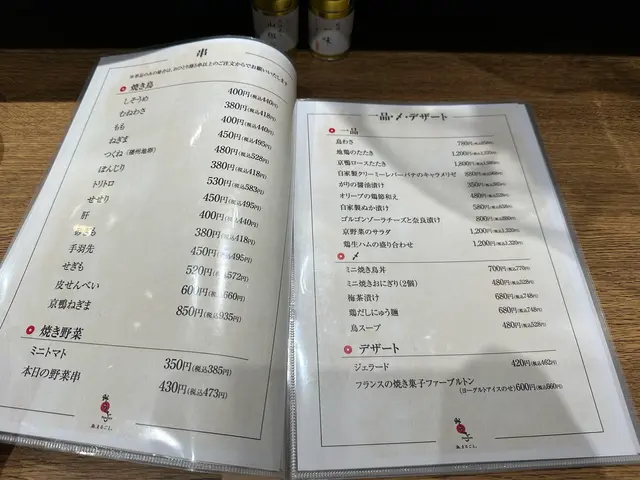 串
焼き鳥
しそうめ 400円(税込440円)
むねわさ 380円(税込418円)
もも 400円(税込440円)
ねぎま 450円(税込495円)
つくね(播州地卵) 480円(税込528円)
ぼんじり 380円(税込418円)
トリトロ 530円(税込583円)
せせり 450円(税込495円)
肝 400円(税込440円)
380円(税込418円)
手羽先 450円(税込495円)
せぎも 520円(税込572円)
皮せんべい 600円(税込660円)
京鴨ねぎま 850円(税込935円)
焼き野菜
ミニトマト 350円(税込385円)
本日の野菜串 430円(税込473円)
一品・〆・デザート
一品
鳥わさ 780円
地鶏のたたき 1,200円
京鴨ロースたたき 1,800円
自家製クリーミーレバーパテのキャラメリゼ
がりの醤油漬け 350円
オリーブの鶏節和え 480円
自家製ぬか漬け 580円
ゴルゴンゾーラチーズと奈良漬け 800円
京野菜のサラダ 1,200円(税込1,320円)
鶏生ハムの盛り合わせ 1,200円(税込1,320円)
〆
ミニ焼き鳥丼 700円(税込770円)
ミニ焼きおにぎり(2個) 480円(税込528円)
梅茶漬け 680円(税込748円)
鶏だしにゅう麺 680円(税込748円)
鳥スープ 480円(税込528円)
デザート
ジェラード 420円(税込462円)
フランスの焼き菓子ファーブルトン
(ヨーグルトアイスのせ) 600円(税込660円)